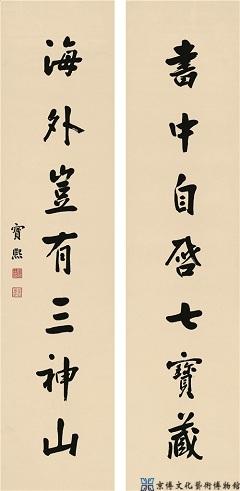 書中自啓七寶藏
海外豈有三神山
寶熙
京博文化藝術博物館